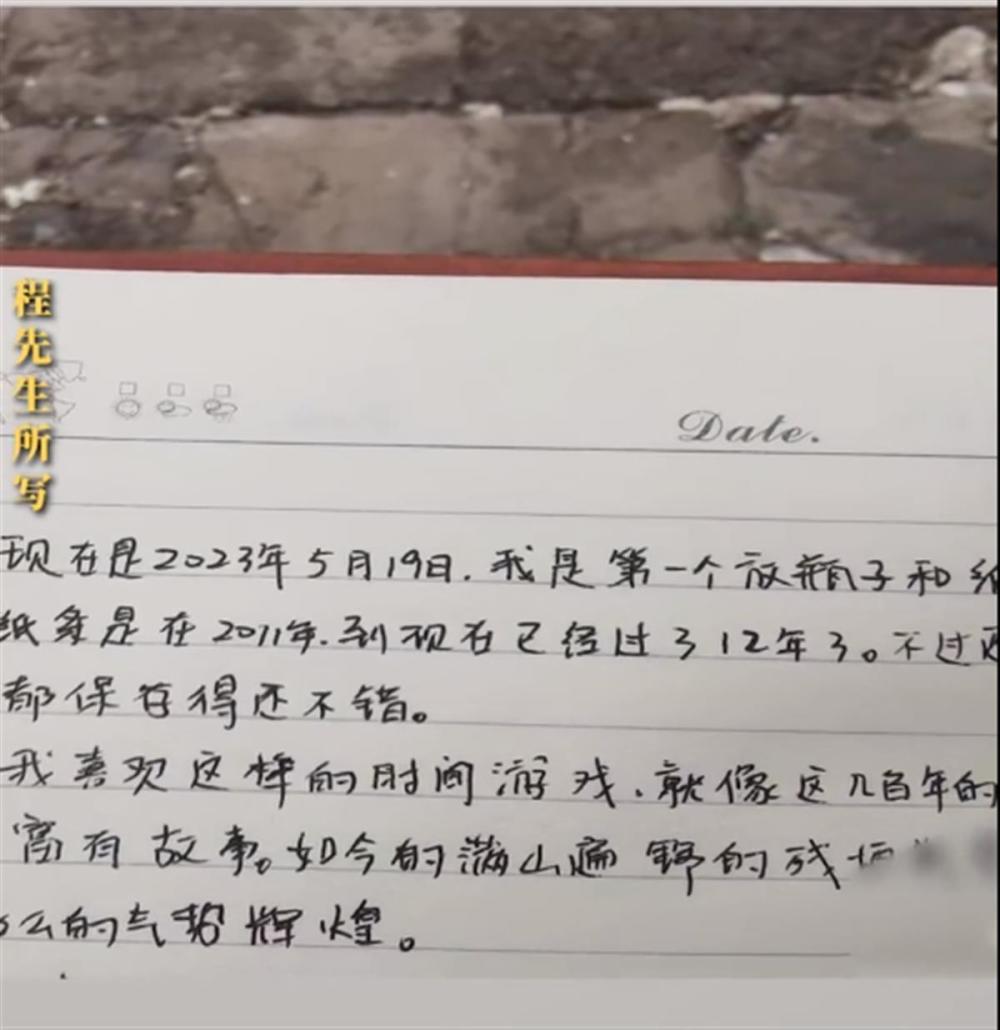 程先生所写
Date.
现在是2023年5月19日.我是第一个放瓶子和纸
纸条是在2011年.到现在已经过了12年了。不过
都保存得还不错。
我喜欢这样的时间游戏、就像这几百年的
富有故事。如今的满山遍野的残垣
么的气势辉煌。